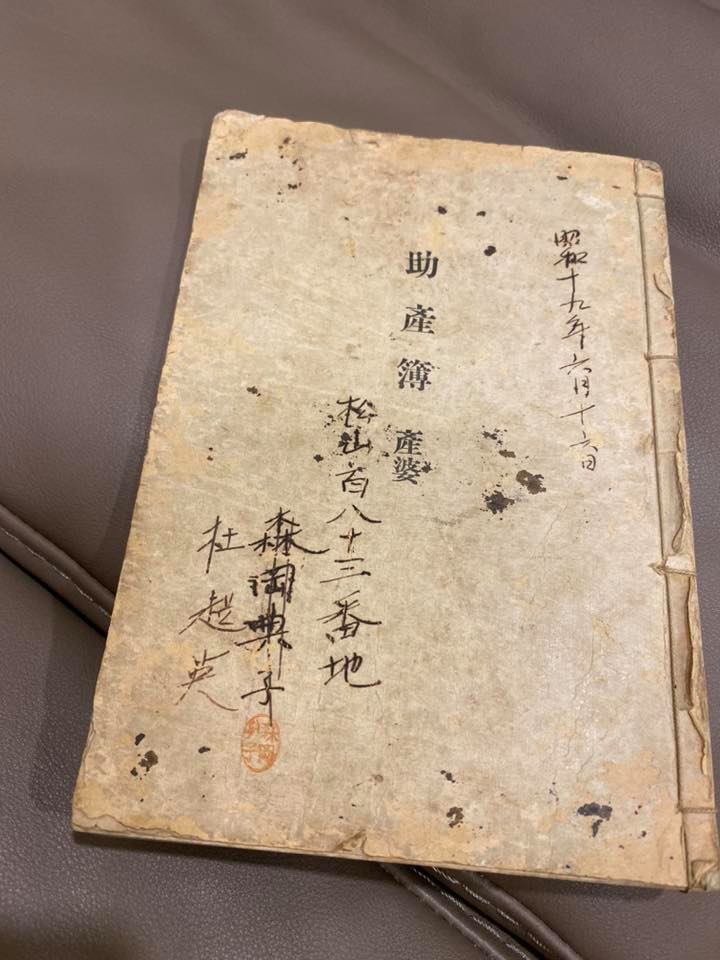 昭和十九年六月十六日
助產簿 產婆
松山百八十三番地
森岡子
杜超英